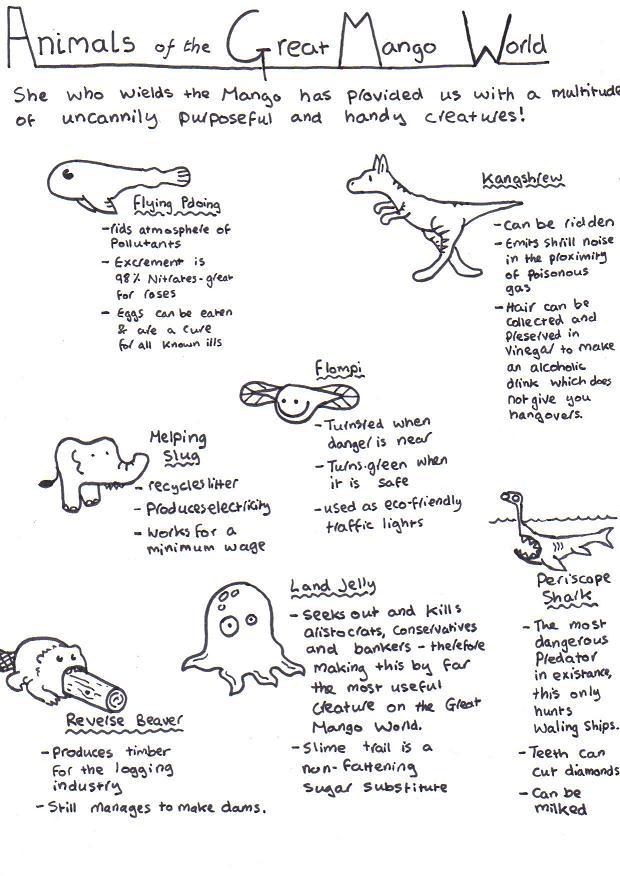 Animals of the Great Mango World
She who wields the Mango has provided us with a multitude
of uncannily purposeful and handy creatures!
Flying Pdoing
-rids atmosphere of
Pollutants
- Excrement is
98% Nitrates-great
for roses
- Eggs can be eaten
& are a cure
for all known ills
Kangshrew
-Can be ridden
-Emits shrill noise
in the proximity
of poisonous
gas
-Hair can be
collected and
preserved in
vinegar to make
an alcoholic
drink which does
not give you
hangovers.
Flompi
-Turns red when
danger is near
-Turns green when
it is safe
-used as eco-friendly
traffic lights
Melping
Slug
-recycles litter
-Produces electricity
-works for a
minimum wage
Periscope
Shark
-The most
dangerous
Predator
in existance,
this only
hunts
Waling Ships.
-Teeth can
cut diamonds
-Can be
milked
Land Jelly
-Seeks out and kills
aristocrats, conservatives
and bankers - therefore
making this by far
the most useful
creature on the Great
Mango World.
-Slime trail is a
non-fattening
sugar substitute
Reverse Beaver
-Produces timber
for the logging
industry
-Still manages to make dams.